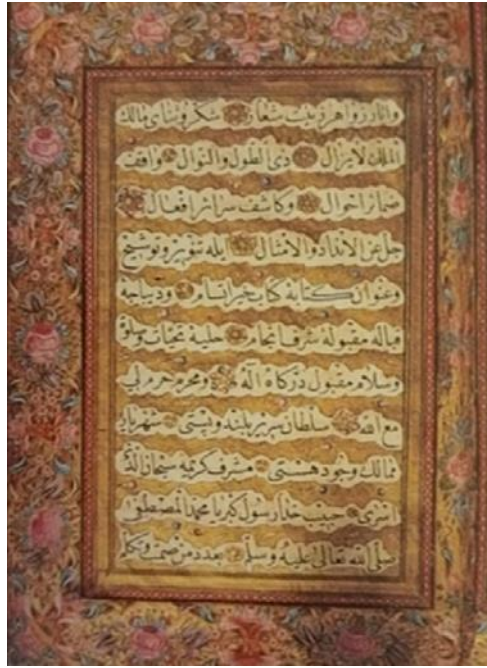 وانار زواهر زینت شعار شکر و ثنای مالك
الملك لایزال ذی الطول والنوال واقف
ضمائر احوال وکاشف سرائر افعال
جل عن الانداد والامثال ایله تنویر وتوشیح
وعنوان کتابه کتاب خیر ارتسام ودیباجه
قباله مقبوله شرف انجام حلیه تحیات وصلوة
وسلام مقبول درگاه اله ومحرم حرم لی
مع الله سلطان سریر بلند وپستی شهریار
ممالك وجود هستی مشرف کریمه سبحان الذی
اسری حبیب خدا رسول کبریا محمد المصطفی
صلی الله تعالی علیه وسلم بعدد من صمت وتکلم